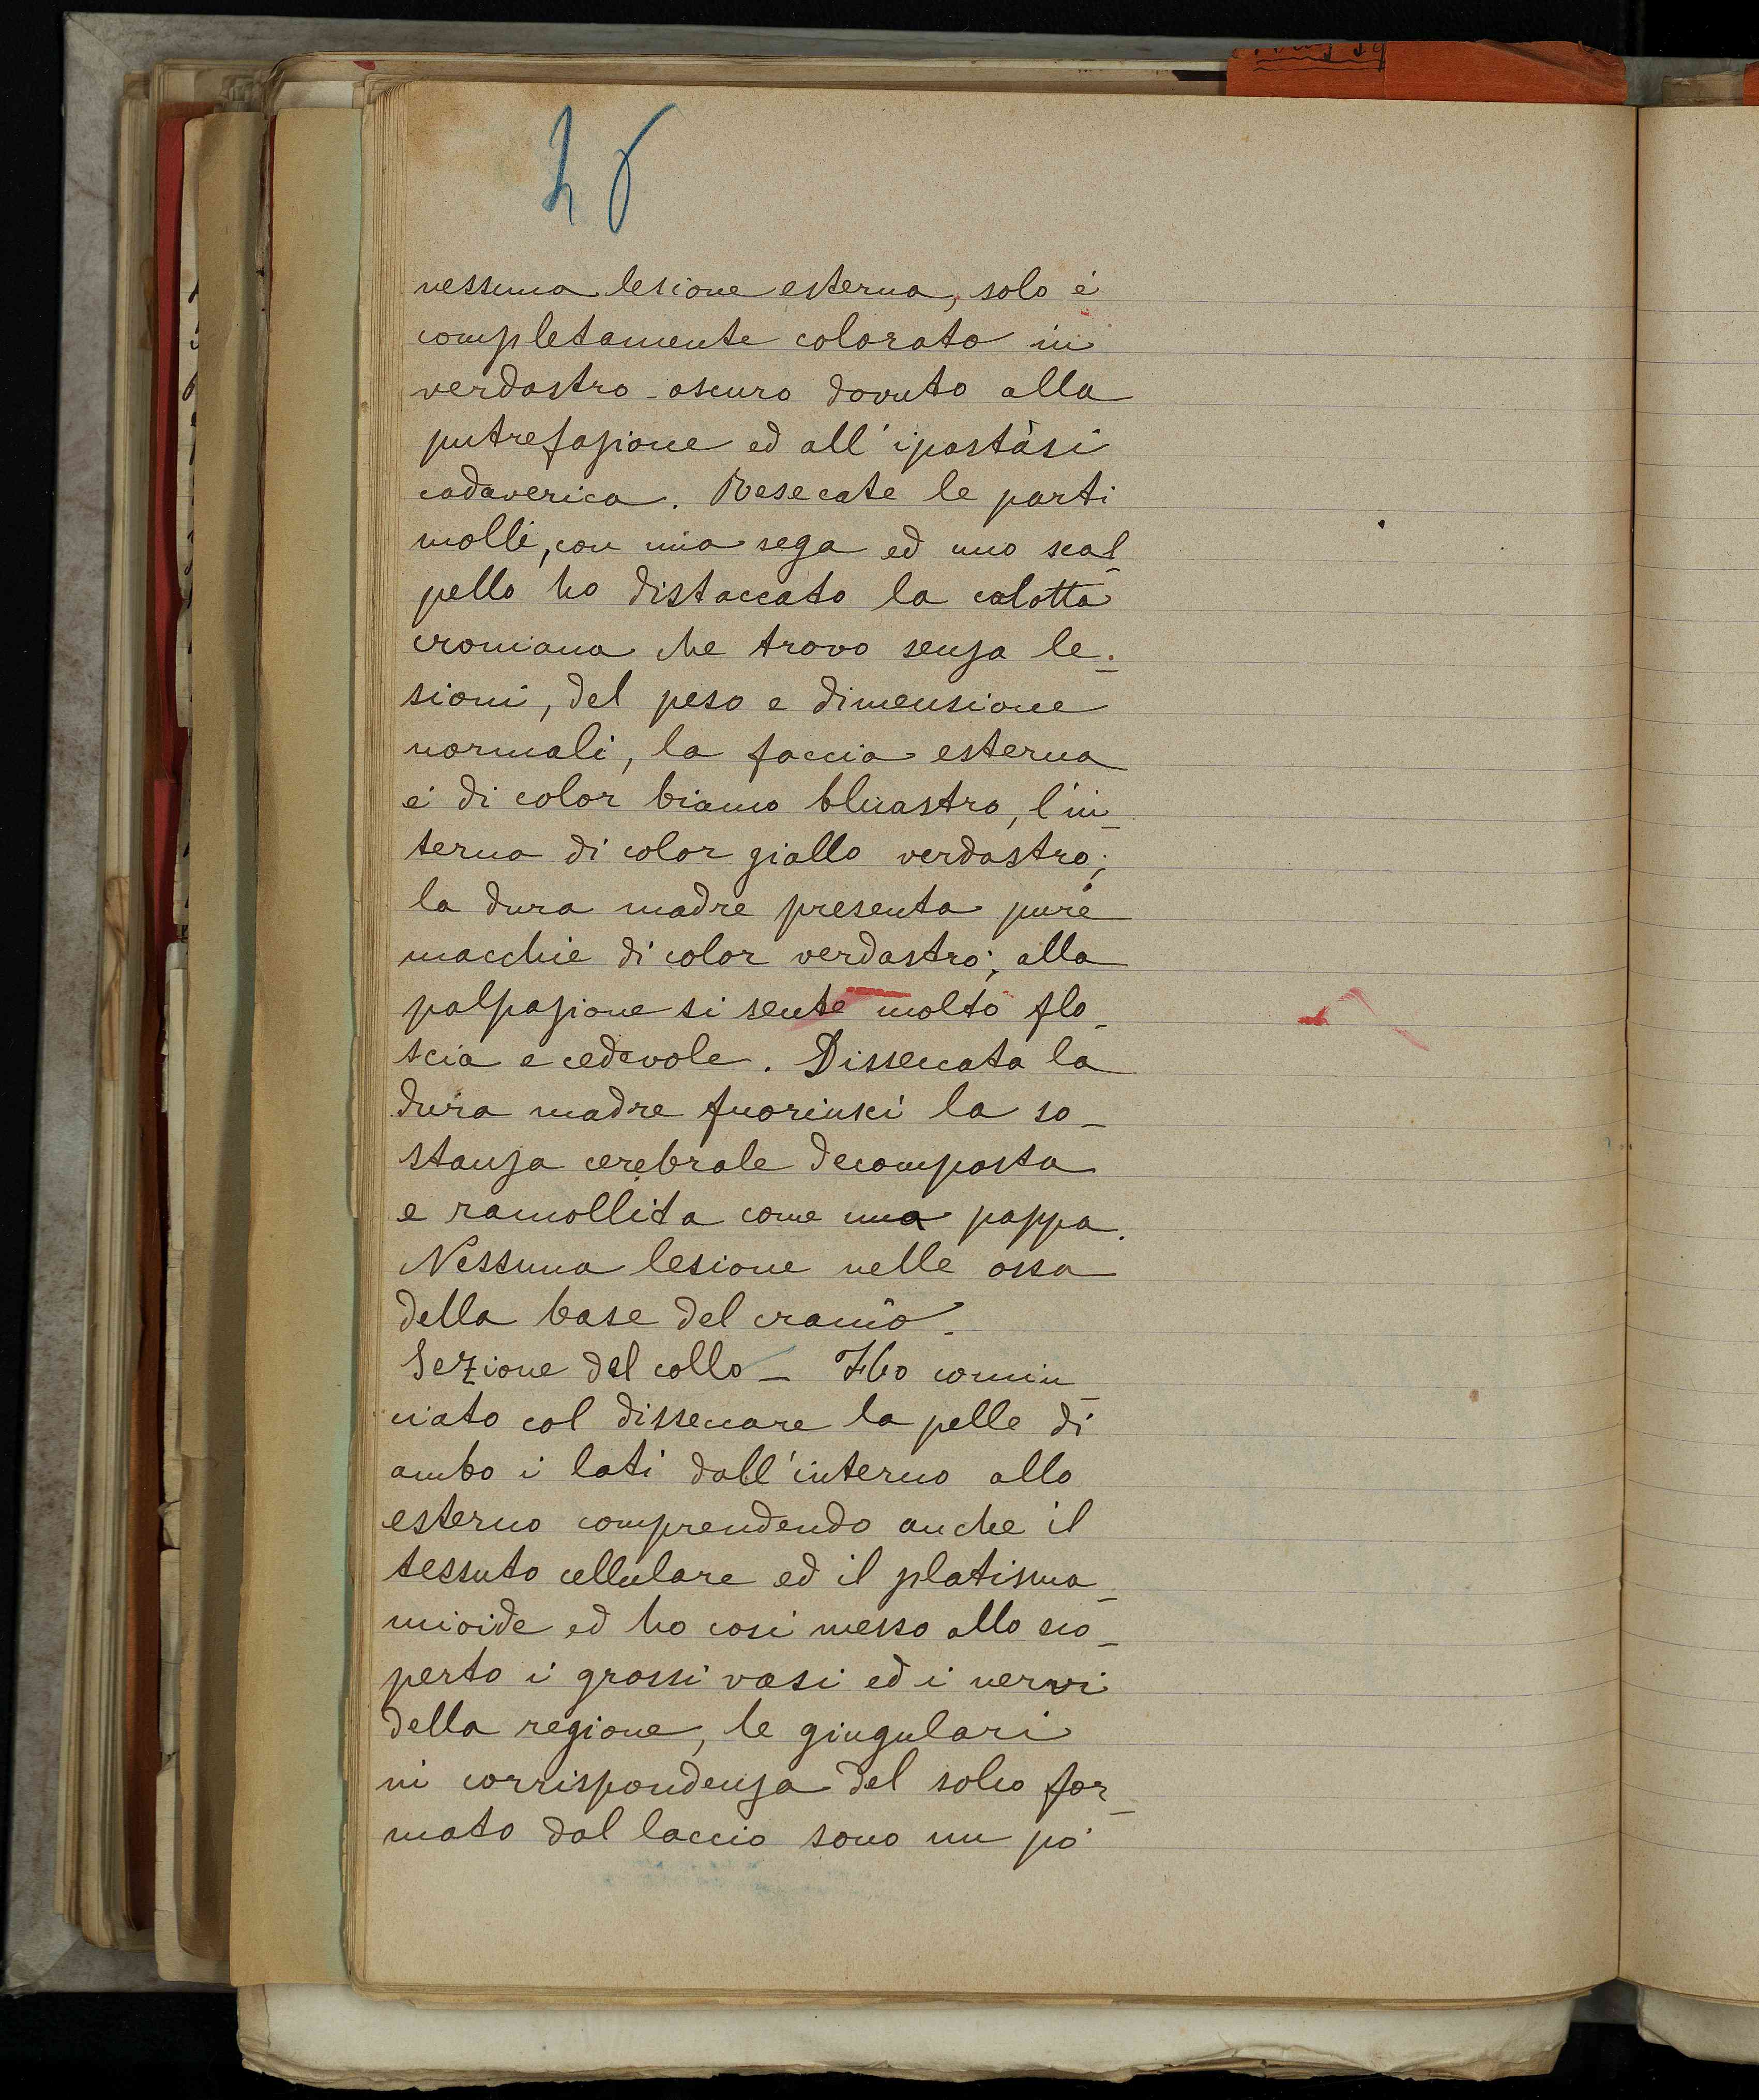 nessuna lesione esterna, solo è
completamente colorato in
verdastro-oscuro dovuto alla
putrefazione ed all'ipostàsi
cadaverica. Resecate le parti
molli, con una sega ed uno scal_
pello ho distaccato la calotta
craniana che trovo senza le_
sioni, del peso e dimensione
normali, la faccia esterna
è di color bianco bluastro, l'in_
terna di color giallo verdastro;
la dura madre presenta pure
macchie di color verdastro; alla
palpazione si sente molto flo_
scia e cedevole. Disseccata la
dura madre fuoriuscì la so_
stanza cerebrale decomposta
e ramollita come una pappa.
Nessuna lesione nelle ossa
della base del cranio.
Sezione del collo_ Ho comin_
ciato col disseccare la pelle di
ambo i lati dall'interno allo
esterno comprendendo anche il
tessuto cellulare ed il platisma_
mioide ed ho così messo allo sco_
perto i grossi vasi ed i nervi
della regione, le giugulari
in corrispondenza del solco for_
mato dal laccio sono un po'